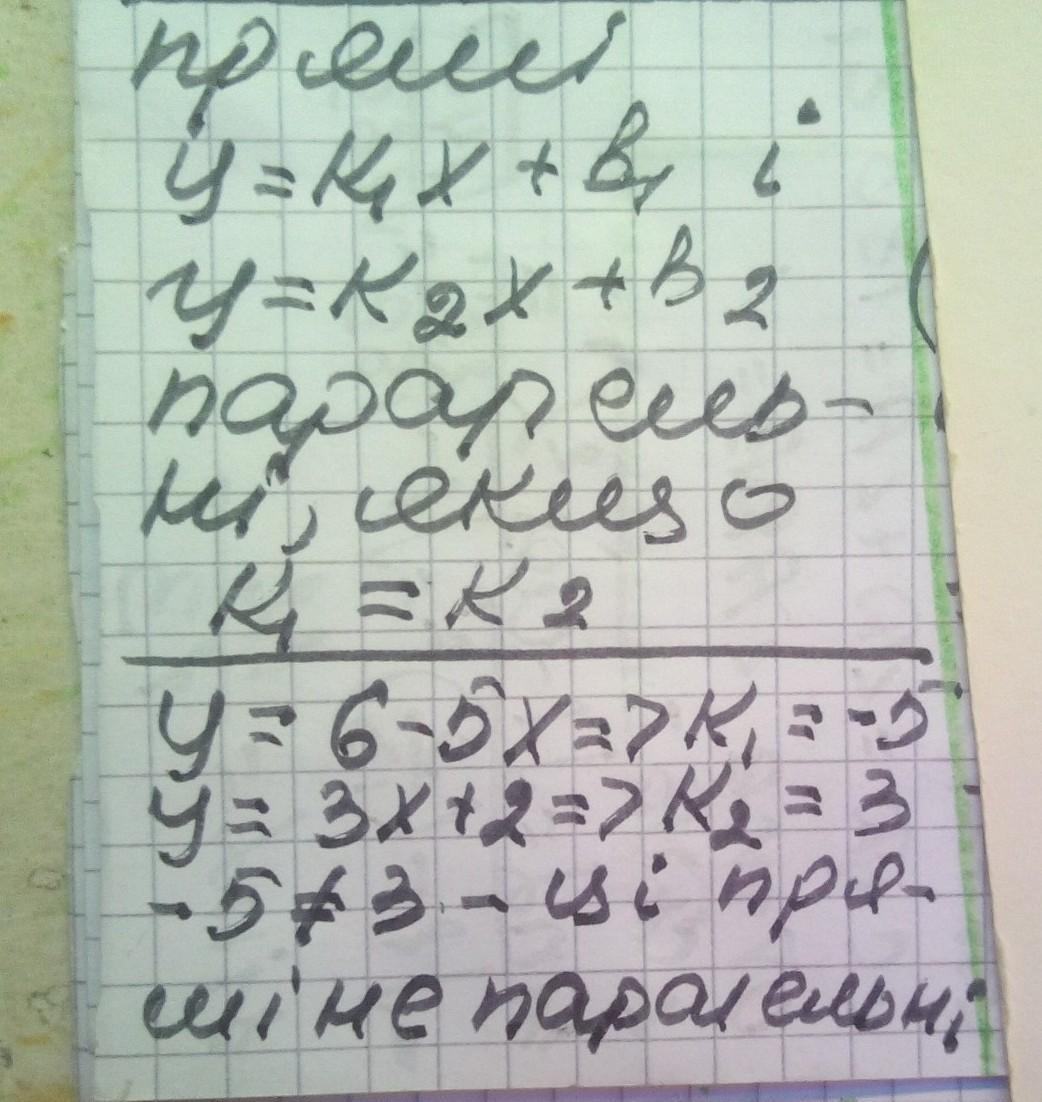 прямі
y=K₁x + b₁ і
y=K₂x + b₂
паралель-
ні, якщо
K₁ = K₂
y = 6-5x => K₁ = -5
y = 3x+2 => K₂ = 3
-5 ≠ 3 - ці пря-
мі не паралельні